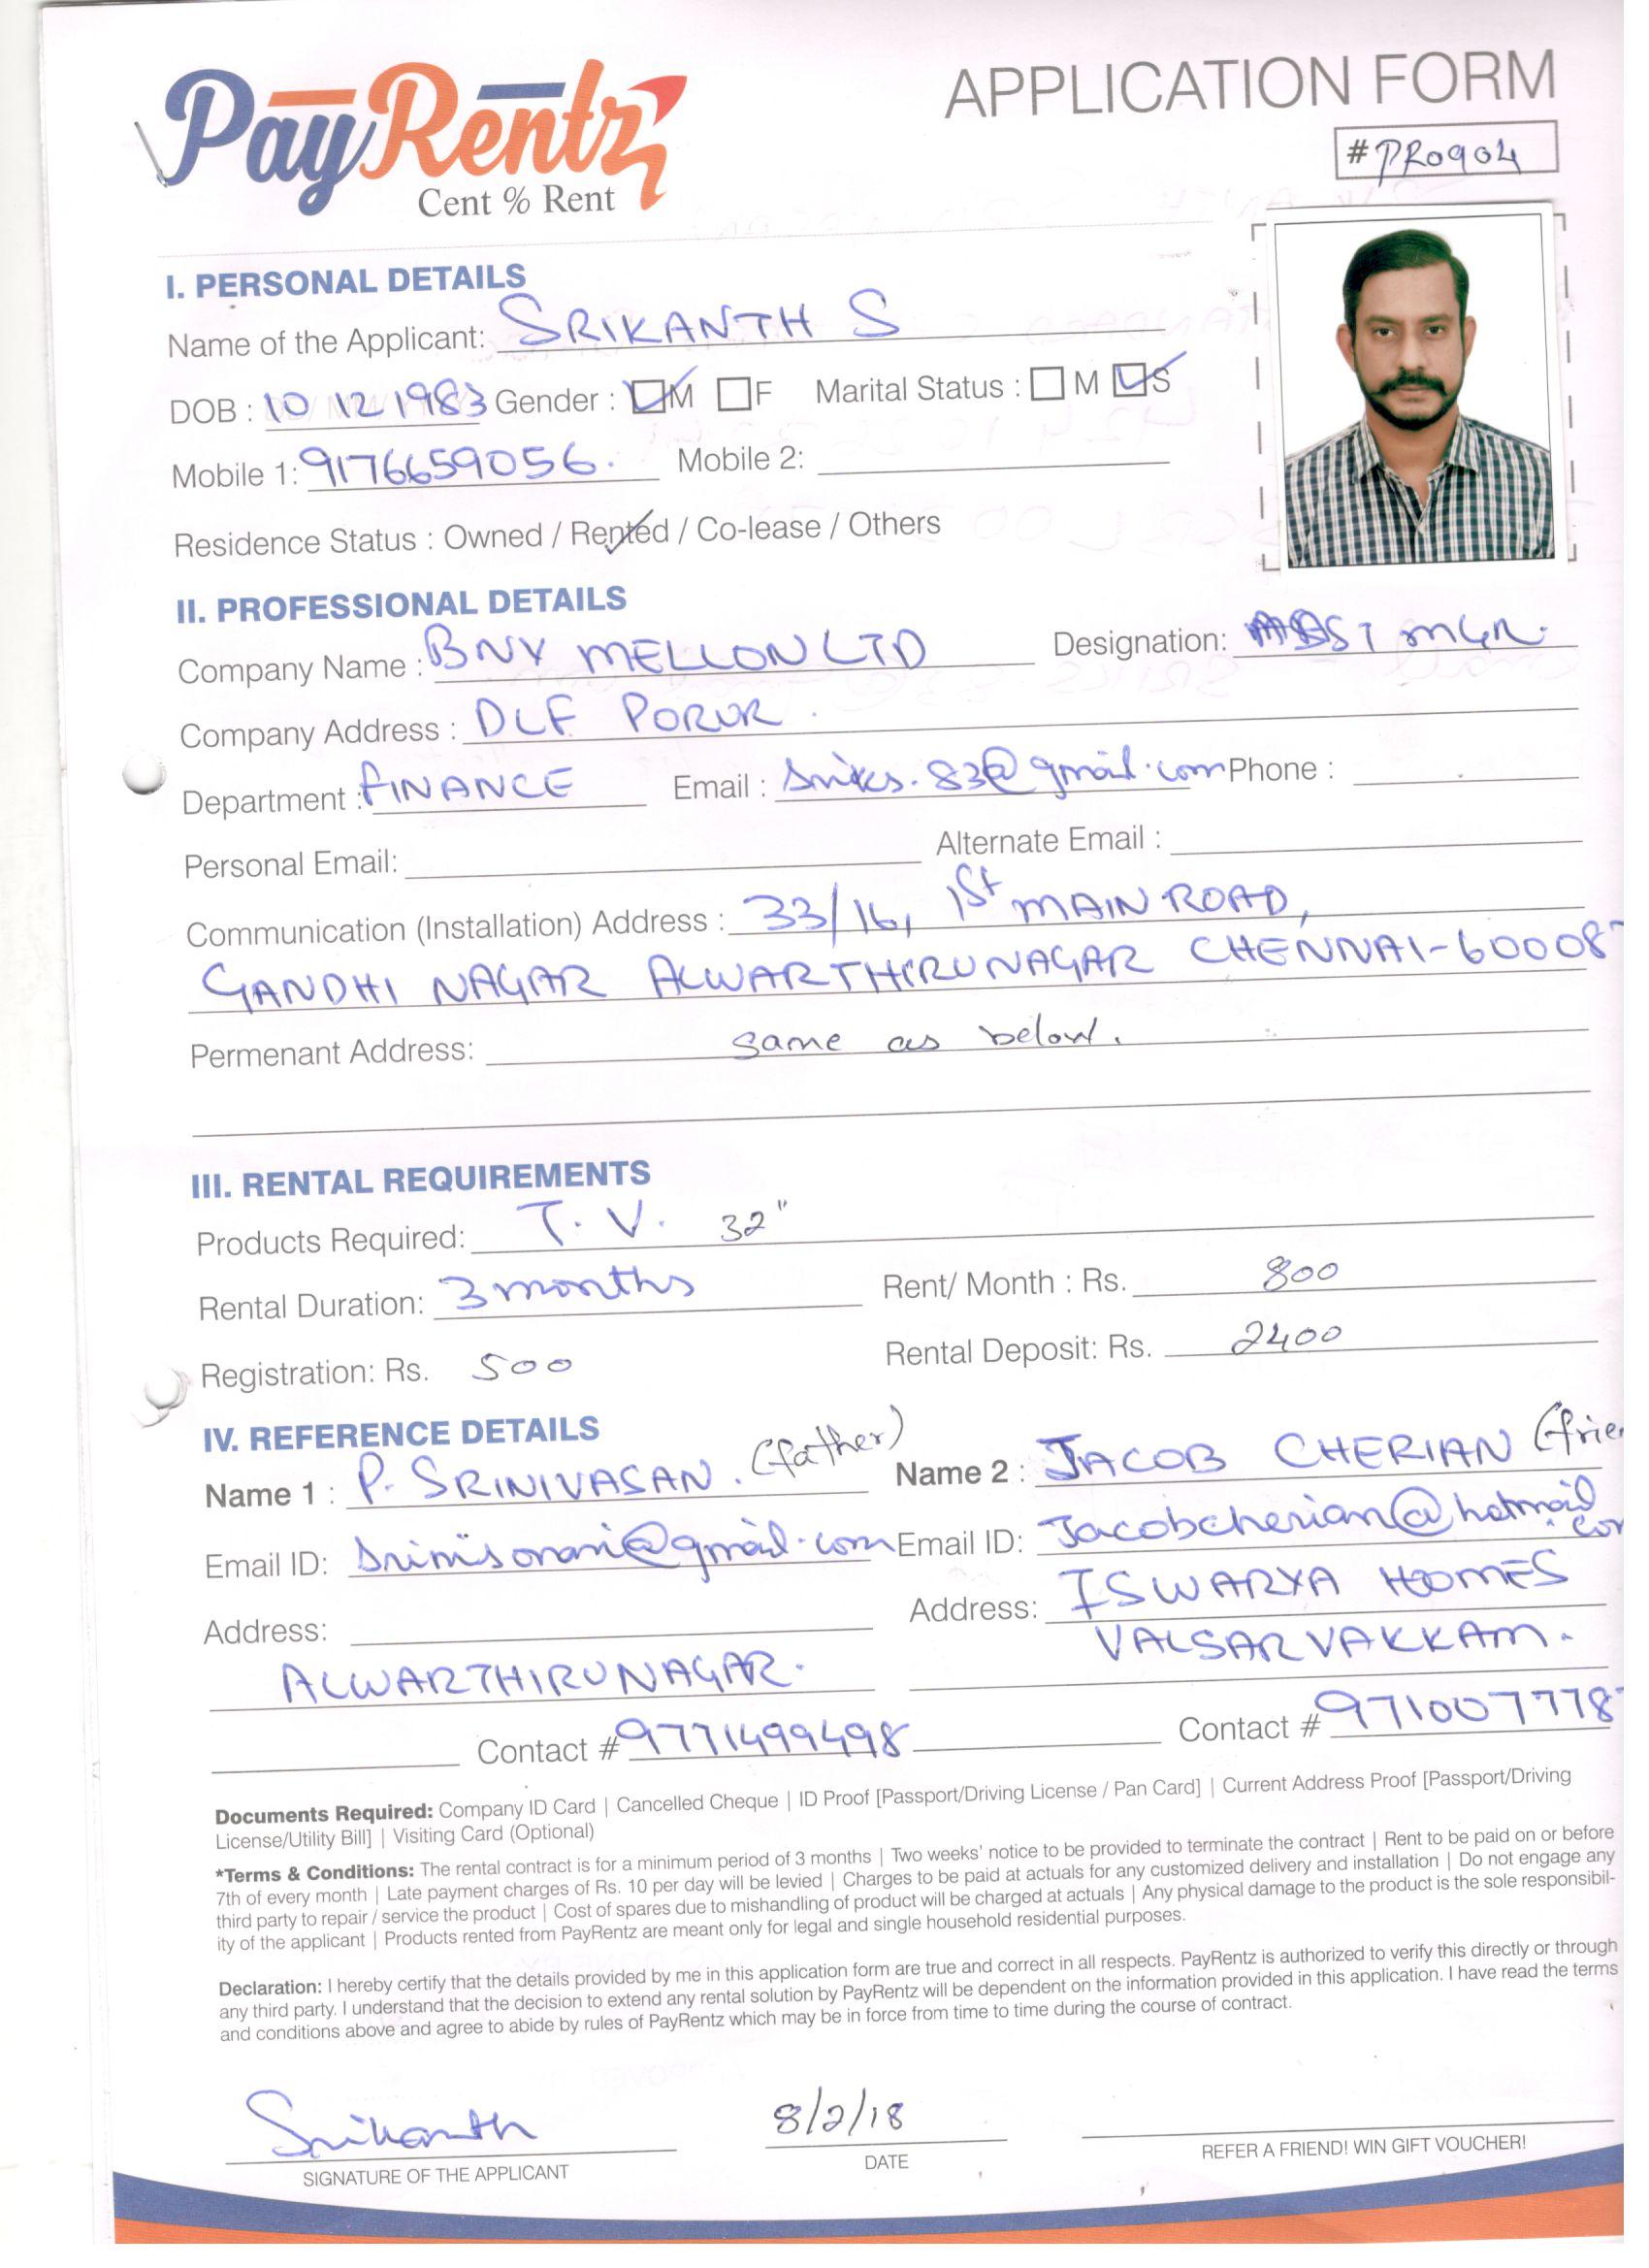 PayRentz
Cent % Rent
APPLICATION FORM
#PR0904
I. PERSONAL DETAILS
Name of the Applicant: SRIKANTH S
DOB : 10 12 1983 Gender : M F Marital Status : M S
Mobile 1: 9176659056. Mobile 2:
Residence Status : Owned / Rented / Co-lease / Others
II. PROFESSIONAL DETAILS
Company Name : BNY MELLON LTD Designation: ASST MGR.
Company Address : DLF PORUR.
Department : FINANCE Email : sriks.83@gmail.com Phone :
Personal Email: Alternate Email :
Communication (Installation) Address : 33/16, 1st MAIN ROAD,
GANDHI NAGAR ALWARTHIRUNAGAR CHENNAI-60008
Permenant Address: same as below.
III. RENTAL REQUIREMENTS
Products Required: T.V. 32"
Rental Duration: 3 months Rent/ Month : Rs. 800
Registration: Rs. 500 Rental Deposit: Rs. 2400
IV. REFERENCE DETAILS
Name 1 : P. SRINIVASAN. (father) Name 2 : JACOB CHERIAN (frie
Email ID: @gmail.com Email ID: Jacobcherian@hotmail.co
Address: Address: ISWARYA HOMES
ALWARTHIRUNAGAR. VALSARVAKKAM.
Contact # 9771499498 Contact # 971007778
Documents Required: Company ID Card | Cancelled Cheque | ID Proof [Passport/Driving License / Pan Card] | Current Address Proof [Passport/Driving
License/Utility Bill] | Visiting Card (Optional)
*Terms & Conditions: The rental contract is for a minimum period of 3 months | Two weeks' notice to be provided to terminate the contract | Rent to be paid on or before
7th of every month | Late payment charges of Rs. 10 per day will be levied | Charges to be paid at actuals for any customized delivery and installation | Do not engage any
third party to repair / service the product | Cost of spares due to mishandling of product will be charged at actuals | Any physical damage to the product is the sole responsibil-
ity of the applicant | Products rented from PayRentz are meant only for legal and single household residential purposes.
Declaration: I hereby certify that the details provided by me in this application form are true and correct in all respects. PayRentz is authorized to verify this directly or through
any third party. I understand that the decision to extend any rental solution by PayRentz will be dependent on the information provided in this application. I have read the terms
and conditions above and agree to abide by rules of PayRentz which may be in force from time to time during the course of contract.
Srikanth 8/2/18
SIGNATURE OF THE APPLICANT DATE REFER A FRIEND! WIN GIFT VOUCHER!